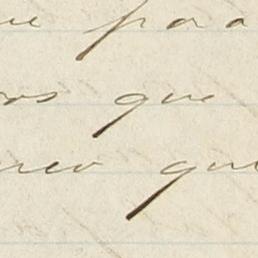 ue para
os que
reo que